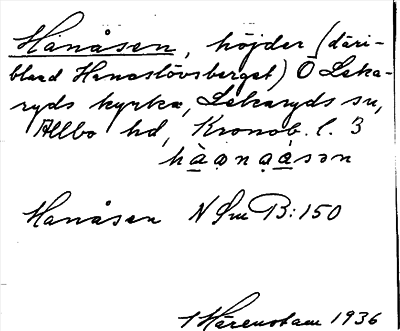 Hanåsen, höjder (däri-
bland Hanastövsberget) Ö Leka-
ryds kyrka, Lekaryds sn,
Allbo hd, Kronob. l. 3
hàạnạ̀ásən
Hanåsen N Sm B:150
1 Härenstam 1936